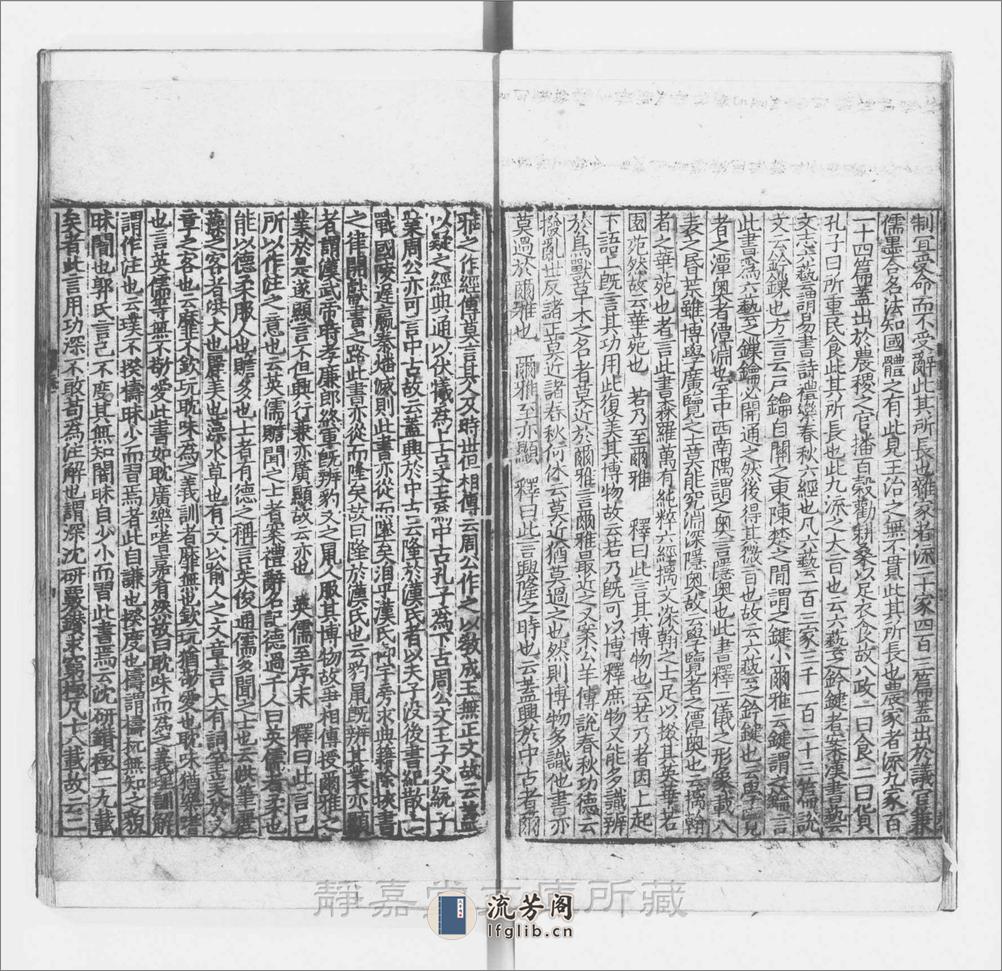 制宜受命而不受辭此其所長也雜家者流二十家四百三篇蓋出於議官兼
儒墨合名法知國體之有此見王治之無不貫此其所長也農家者流九家百
一十四篇蓋出於農稷之官播百穀勸耕桑以足衣食故八政一曰食二曰貨
孔子曰所重民食此其所長也此九流之大旨也云六藝之鈐鍵者案漢書藝
文志六藝謂易書詩禮樂春秋六經也凡六藝一百三家三千一百二十三篇說
文云鈐鏁也方言云戶鑰自關之東陳楚之間謂之鍵小爾雅云鍵謂之鑰言
此書爲六藝之鏁鑰必開通之然後得其微旨也故云六藝之鈐鍵也云學覽
者之潭奧者潭淵也室中西南隅謂之奧言隱奧也此書釋二儀之形象載八
表之昏荒雖博學廣覽之士莫能究淵深隱奧故云學覽者之潭奧也云摛翰
者之華苑也者言此書森羅萬有純粹六經摛文染翰之士足以掞其英華若
園苑然故云華苑也　若乃至爾雅　釋曰此言其博物也云若乃者因上起
下語也既言其功用此復美其博物故云若乃既可以博釋庶物又能多識辨
於鳥獸草木之名者莫近於爾雅言爾雅最近之文案公羊傳說春秋功德云
撥亂世反諸正莫近諸春秋何休云莫近猶莫過之也然則博物多識他書亦
莫過於爾雅也　爾雅至亦顯　釋曰此言興隆之時也云蓋興於中古者爾
雅之作經傳莫言其人及時世但相傳云周公作之以教成王無正文故云蓋
以疑之經典通以伏犧爲上古文王爲中古孔子爲下古周公文王子父統子
業周公亦可言中古故云蓋興於中古云隆於漢氏者以夫子沒後書紀散亡
戰國陵遲嬴秦燔滅則此書亦從而墜矣洎乎漢氏御宇旁求典籍除挾書
之律開獻書之路此書亦從而隆矣故曰隆於漢氏也云豹鼠既辨其業亦顯
者謂漢武帝時孝廉郎終軍既辨豹文之鼠人服其博物故爭相傳授爾雅之
業於是遂顯言不但興行兼亦廣顯故云亦也　英儒至序末　釋曰此言己
所以作注之意也云英儒贍聞之士者案禮辯名記德過千人曰英儒者柔也
能以德柔服人也贍多也士者有德之稱言英俊通儒多聞之士也云洪筆麗
藻之客者洪大也麗美也藻水草也有文以喻人之文章言大有詞筆美於文
章之客也云靡不欽玩耽味爲之義訓者靡無也欽玩猶翫愛也耽味猶樂嗜
也言英儒等無不翫愛此書如耽廣樂嗜嘉肴然故曰耽味而爲之義訓訓解
謂作注也云璞不揆檮昧少而習焉者此自謙也揆度也檮謂檮杌無知之貌
昧闇也郭氏言己不度其無知闇昧自少小而習此書焉云沈研鑽極二九載
矣者此言用功深不敢苟爲注解也謂深沈研覈鑽求窮極凡十八載故云二
靜嘉堂文庫所藏
流芳阁
lfglib.cn